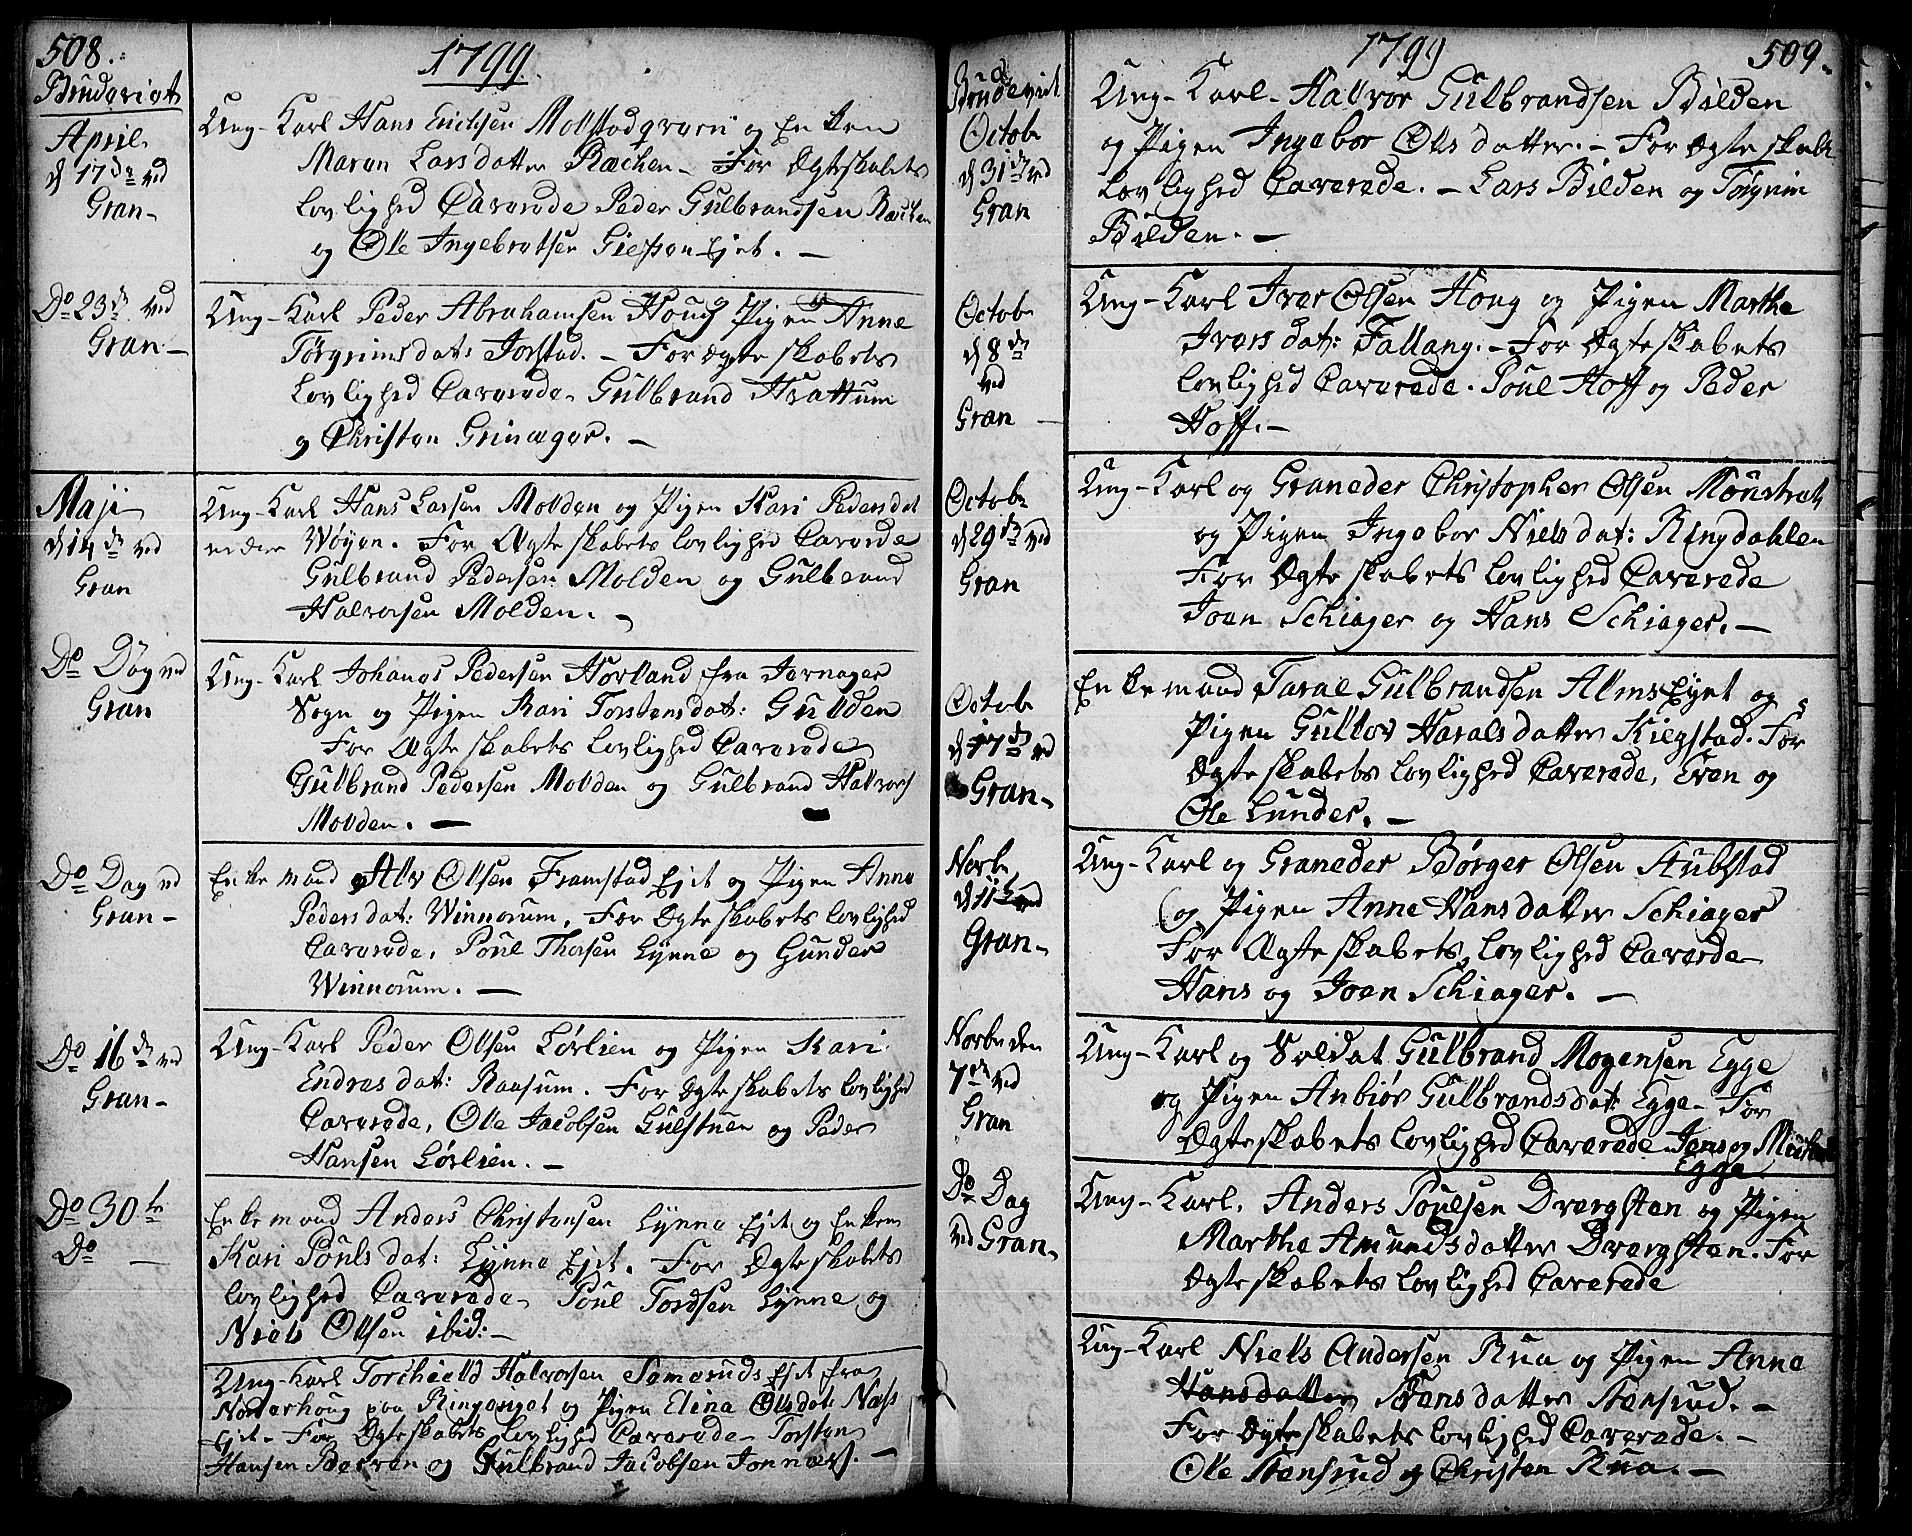 508.
1799.
Brudeviet
April
d 17de ved
Gran-
Ung-Karl Hans Erichsen Molstadqvern og Enken
Maren Larsdatter Ræcken - For Ægteskabets
Lovlighed Caverede Peder Gulbrandsen Ræcken
og Ole Ingebretsen Giefsen Ejet. -
Do 23de ved
Gran-
Ung-Karl Peder Abrahamsen Houg og Pigen Anne
Torgrimsdat: Jorstad. - For Ægteskabets
Lovlighed Caverede. Gulbrand Hvattum
og Christen Grinager. -
Maji
d 14de ved
Gran
Ung-Karl Hans Larsen Molden og Pigen Kari Pedersdat
nedre Wøyen. For Ægteskabets Lovlighed Caverede
Gulbrand Pedersen Molden og Gulbrand
Halvorsen Molden. -
Do Dag ved
Gran
Ung-Karl Johanes Pedersen Horland fra Jevnager
Sogn og Pigen Kari Torstensdat: Gulden
For Ægteskabets Lovlighed Caverede
Gulbrand Pedersen Molden og Gulbrand Halvors
Molden. -
Do Dag ved
Gran-
Enkemand Alv Olsen Framstad Ejet og Pigen Anne
Pedersdat: Winnorum. For Ægteskabets Lovlighed
Caverede, Poul Thosen Lynne og Gunder
Winnorum. -
Do 16de ved
Gran-
Ung-Karl Peder Olsen Lørlien og Pigen Kari
Endresdat: Raasum. For Ægteskabets Lovlighed
Caverede, Ole Jacobsen Gulstuen og Peder
Hansen Lørlien. -
Do 30te
Do -
Enkemand Anders Christensen Lynne Ejet og Enken
Kari Poulsdat: Lynne Ejet. For Ægteskabets
Lovlighed Caverede. Poul Tordsen Lynne og
Niels Olsen ibid: -
Ung-Karl Torchield Halvorsen Semeruds Ejet fra
Norderhoug paa Ringeriget og Pigen Elina Olsdat: Næss
Ejet - For Ægteskabets Lovlighed Caverede - Torsten
Hansen Berven og Gulbrand Jacobsen Jonnæss. -
1799
509.
Brudeviet
Octobr
d 31de ved
Gran
Ung-Karl-Halvor Gulbrandsen Bilden
og Pigen Ingebor Olsdatter. - For Ægteskabets
Lovlighed Caverede. - Lars Bilden og Torgrim
Bilden. -
Octobr
d 8de
ved
Gran -
Ung-Karl Iver Olsen Houg og Pigen Marthe
Iversdat: Fallang. - For Ægteskabets
Lovlighed Caverede. Poul Hoff og Peder
Hoff. -
Octobr
d 29de ved
Gran
Ung-Karl og Graneder Christopher Olsen Monstrat
og Pigen Ingebor Nielsdat: Ringdahlen
For Ægteskabets Lovlighed Caverede
Joen Schiager og Hans Schiager. -
Octobr
d 17de ved
Gran-
Enkemand Tarae Gulbrandsen Alms Eyet og
Pigen Gullov Haralsdatter Kiegstad. For
Ægteskabets Lovlighed Caverede, Even og
Ole Lunder. -
Novbr
d 11te ved
Gran-
Ung-Karl og Graneder Børger Olsen Stubstad
og Pigen Anne Hansdatter Schiager
For Ægteskabets Lovlighed Caverede
Hans og Joen Schiager. -
Novbr den
7de ved
Gran
Ung-Karl og Soldat Gulbrand Mogensen Egge
og Pigen Anbiør Gulbrandsdat: Egge - For
Ægteskabets Lovlighed Caverede Jens og
Egge
Do Dag
ved Gran-
Ung-Karl. Anders Poulsen Dvergsten og Pigen
Marthe Amundsdatter Dvergsten. For
Ægteskabets Lovlighed Caverede
Ung-Karl Niels Andersen Rua og Pigen Anne
Hansdatter Svensdatter Stensrud. -
For Ægteskabets Lovlighed Caverede. -
Ole Stensrud og Christen Rua. -